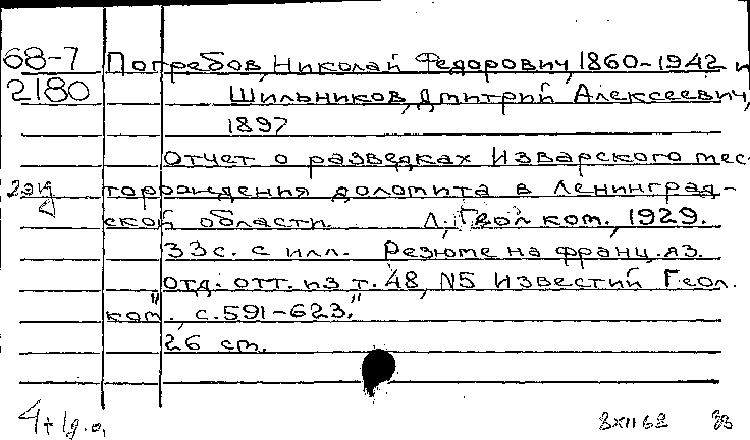 68-7 Погребов, Николай Федорович, 1860-1942 и
2180 Шильников, Дмитрий Алексеевич,
1897
Отчет о разведках Изварского мес-
торождения доломита в Ленинград-
ской области Л., Геол. ком., 1929.
33 с. с илл. Резюме на франц. яз.
Отд. отт. из т. 48, N5 "Известий Геол.
ком.", с. 591-623.
26 cm.
4 + 1 д.о. 8 XII 68